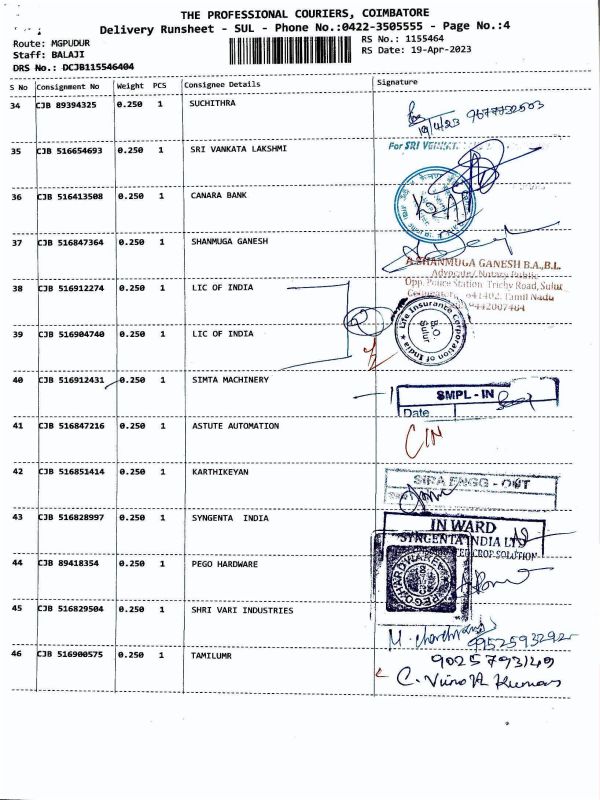 THE PROFESSIONAL COURIERS, COIMBATORE
Delivery Runsheet - SUL - Phone No.:0422-3505555 - Page No.:4
Route: MGPUDUR
RS No.: 1155464
Staff: BALAJI
RS Date: 19-Apr-2023
DRS No.: DCJB115546404
S No Consignment No Weight PCS Consignee Details Signature
34 CJB 89394325 0.250 1 SUCHITHRA
19/4/23
35 CJB 516654693 0.250 1 SRI VANKATA LAKSHMI
For SRI
36 CJB 516413508 0.250 1 CANARA BANK
37 CJB 516847364 0.250 1 SHANMUGA GANESH
A.SHANMUGA GANESH B.A.,B.L.
Advocate/ Notary Public
Opp. Police Station, Trichy Road, Sulur
641402, Tamil Nadu
38 CJB 516912274 0.250 1 LIC OF INDIA
Life Insurance Corporation of India
B.O
Sulur
39 CJB 516904740 0.250 1 LIC OF INDIA
40 CJB 516912431 0.250 1 SIMTA MACHINERY
SMPL - IN
Date
41 CJB 516847216 0.250 1 ASTUTE AUTOMATION
42 CJB 516851414 0.250 1 KARTHIKEYAN
ENGG - OUT
43 CJB 516828997 0.250 1 SYNGENTA INDIA
IN WARD
SYNGENTA INDIA LTD
CROP SOLUTION
44 CJB 89418354 0.250 1 PEGO HARDWARE
PEGO HARDWARE
45 CJB 516829504 0.250 1 SHRI VARI INDUSTRIES
46 CJB 516900575 0.250 1 TAMILUMR
9025793149
C. Vinoth Kumar